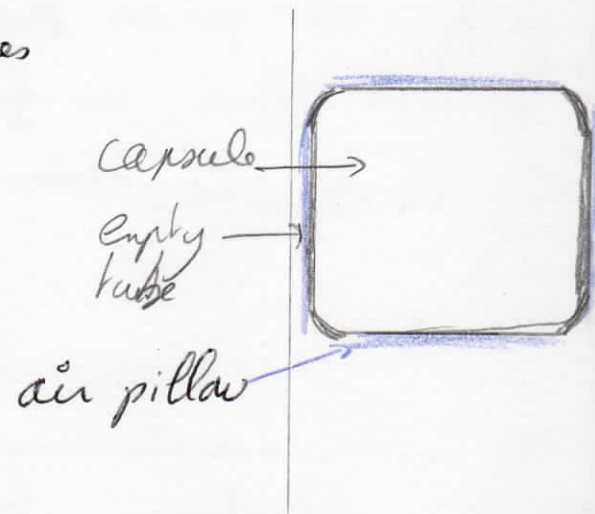 es
capsule
empty
tube
air pillow